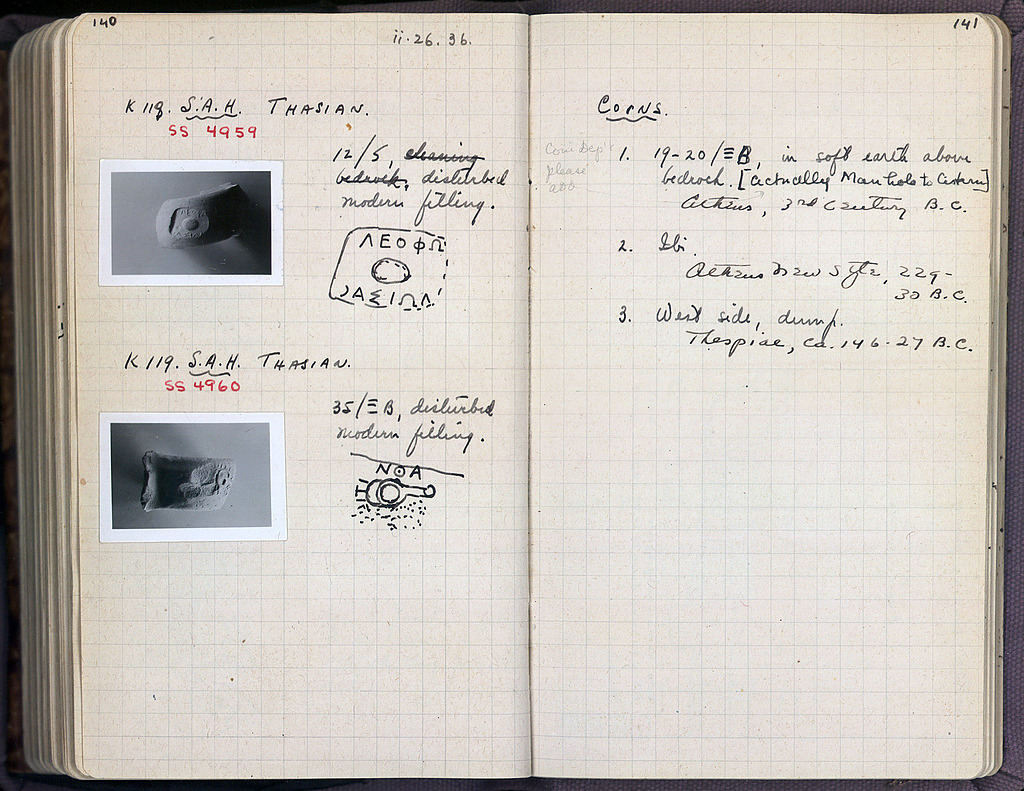 140
ii·26. 36.
K 118. S.A.H. THASIAN.
SS 4959
12/5, cleaning
bedrock, disturbed
modern filling.
ΛΕΟΦΩ
ΑΣΙΩΝ
K 119. S.A.H. THASIAN.
SS 4960
35/Ξ B, disturbed
modern filling.
ΝΘΑ
141
COINS.
Coin Dep't
please
add
1. 19-20/Ξ B, in soft earth above
bedrock. [actually Manhole to Cistern]
Athens, 3rd Century B.C.
2. Ibi.
Athens New Style, 229-
30 B.C.
3. West side, dump.
Thespiae, ca. 146-27 B.C.